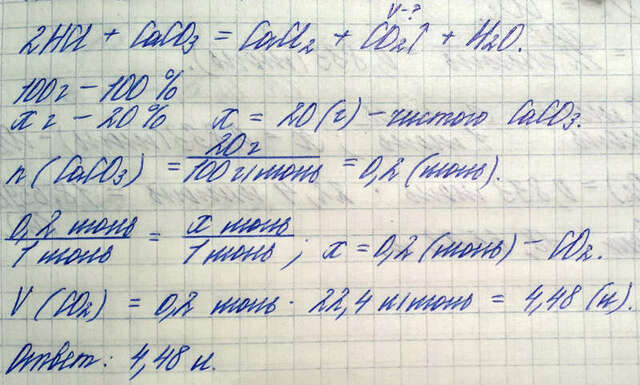 V-?
2HCl + CaCO₃ = CaCl₂ + CO₂↑ + H₂O.
100г - 100 %
x г - 20 % x = 20(г) - чистого CaCO₃.
n(CaCO₃) = 20 г / 100 г/моль = 0,2 (моль).
0,2 моль / 1 моль = x моль / 1 моль ; x = 0,2 (моль) - CO₂.
V(CO₂) = 0,2 моль · 22,4 л/моль = 4,48 (л).
Ответ: 4,48 л.